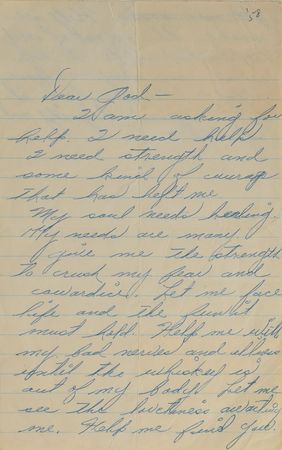 '58
Dear God —
I am asking for
help. I need help
I need strength and
some kind of courage
that has left me
My soul needs healing.
My needs are many
give me the strength
to crush my fear and
cowardice. Let me face
life and the
must hold. Help me with
my bad nerves and
until the whiskey is
out of my body. Let me
see the awaiting
me. Help me find you.